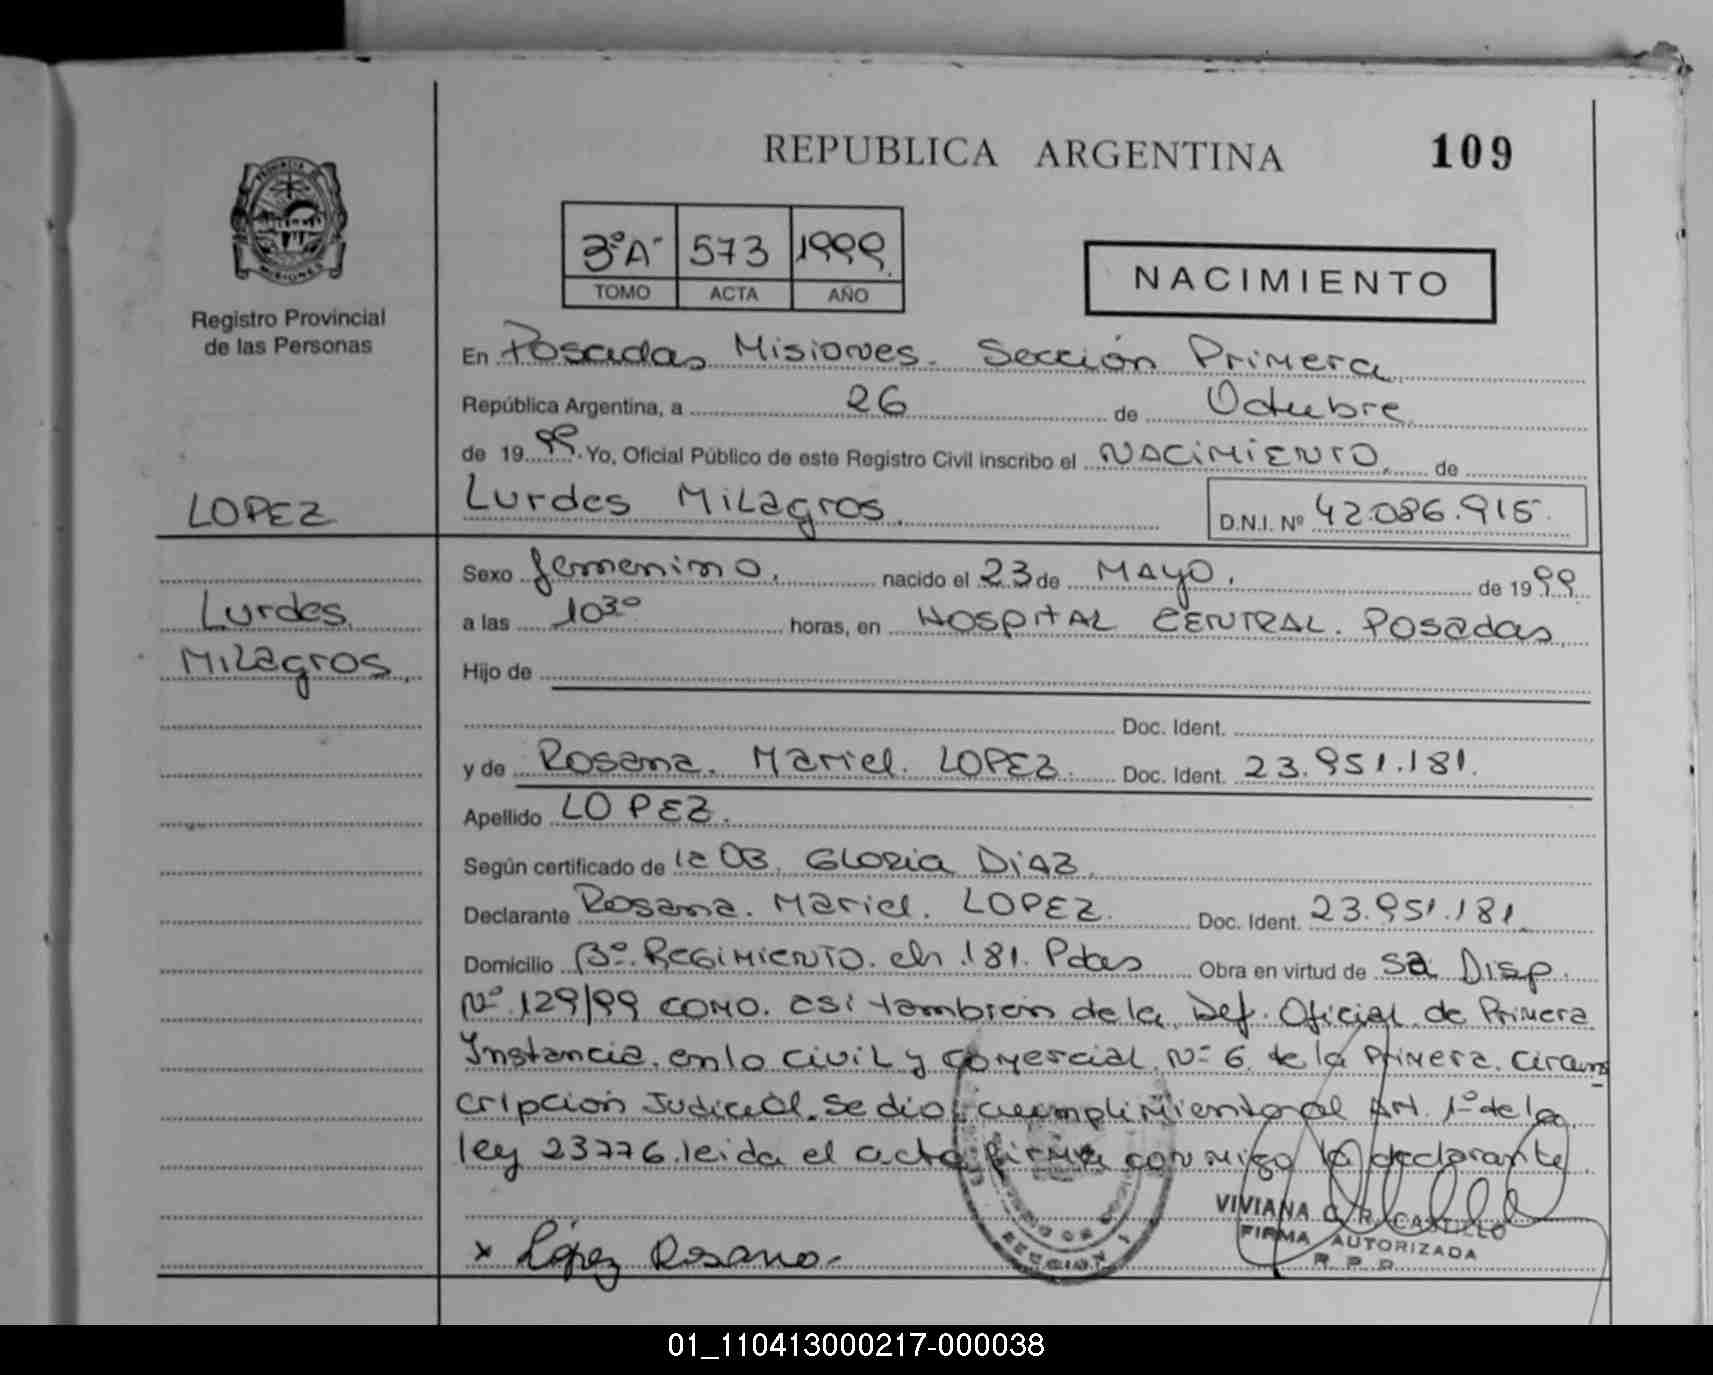 REPUBLICA ARGENTINA 109
PROVINCIA DE
MISIONES
Registro Provincial
de las Personas
3º A 573 1999
TOMO ACTA AÑO
NACIMIENTO
En Posadas Misiones. Sección Primera
República Argentina, a 26 de Octubre
de 1999. Yo, Oficial Público de este Registro Civil inscribo el NACIMIENTO de
LOPEZ
Lurdes Milagros. D.N.I. Nº 42.086.915.
Sexo femenino, nacido el 23 de MAYO, de 1999
Lurdes
a las 1030 horas, en HOSPITAL CENTRAL. Posadas
Milagros
Hijo de
Doc. Ident.
y de Rosana. Mariel. LOPEZ. Doc. Ident. 23.951.181.
Apellido LOPEZ.
Según certificado de la OB. GLORIA DIAZ.
Declarante Rosana. Mariel. LOPEZ. Doc. Ident. 23.951.181.
Domicilio Bº. REGIMIENTO. ch. 181. Pdas Obra en virtud de sa Disp.
Nº 129/99 como. asi tambien de la Def. Oficial de Primera
Instancia. en lo civil y comercial. Nº 6. de la primera. circuns
cripcion Judicial. se dio cumplimiento al Art. 1º de la
ley 23776. leida el acta firma conmigo la declarante
VIVIANA C. R. CASTILLO
FIRMA AUTORIZADA
R. P. P.
SECCION 1
x López Rosana.
01_110413000217-000038